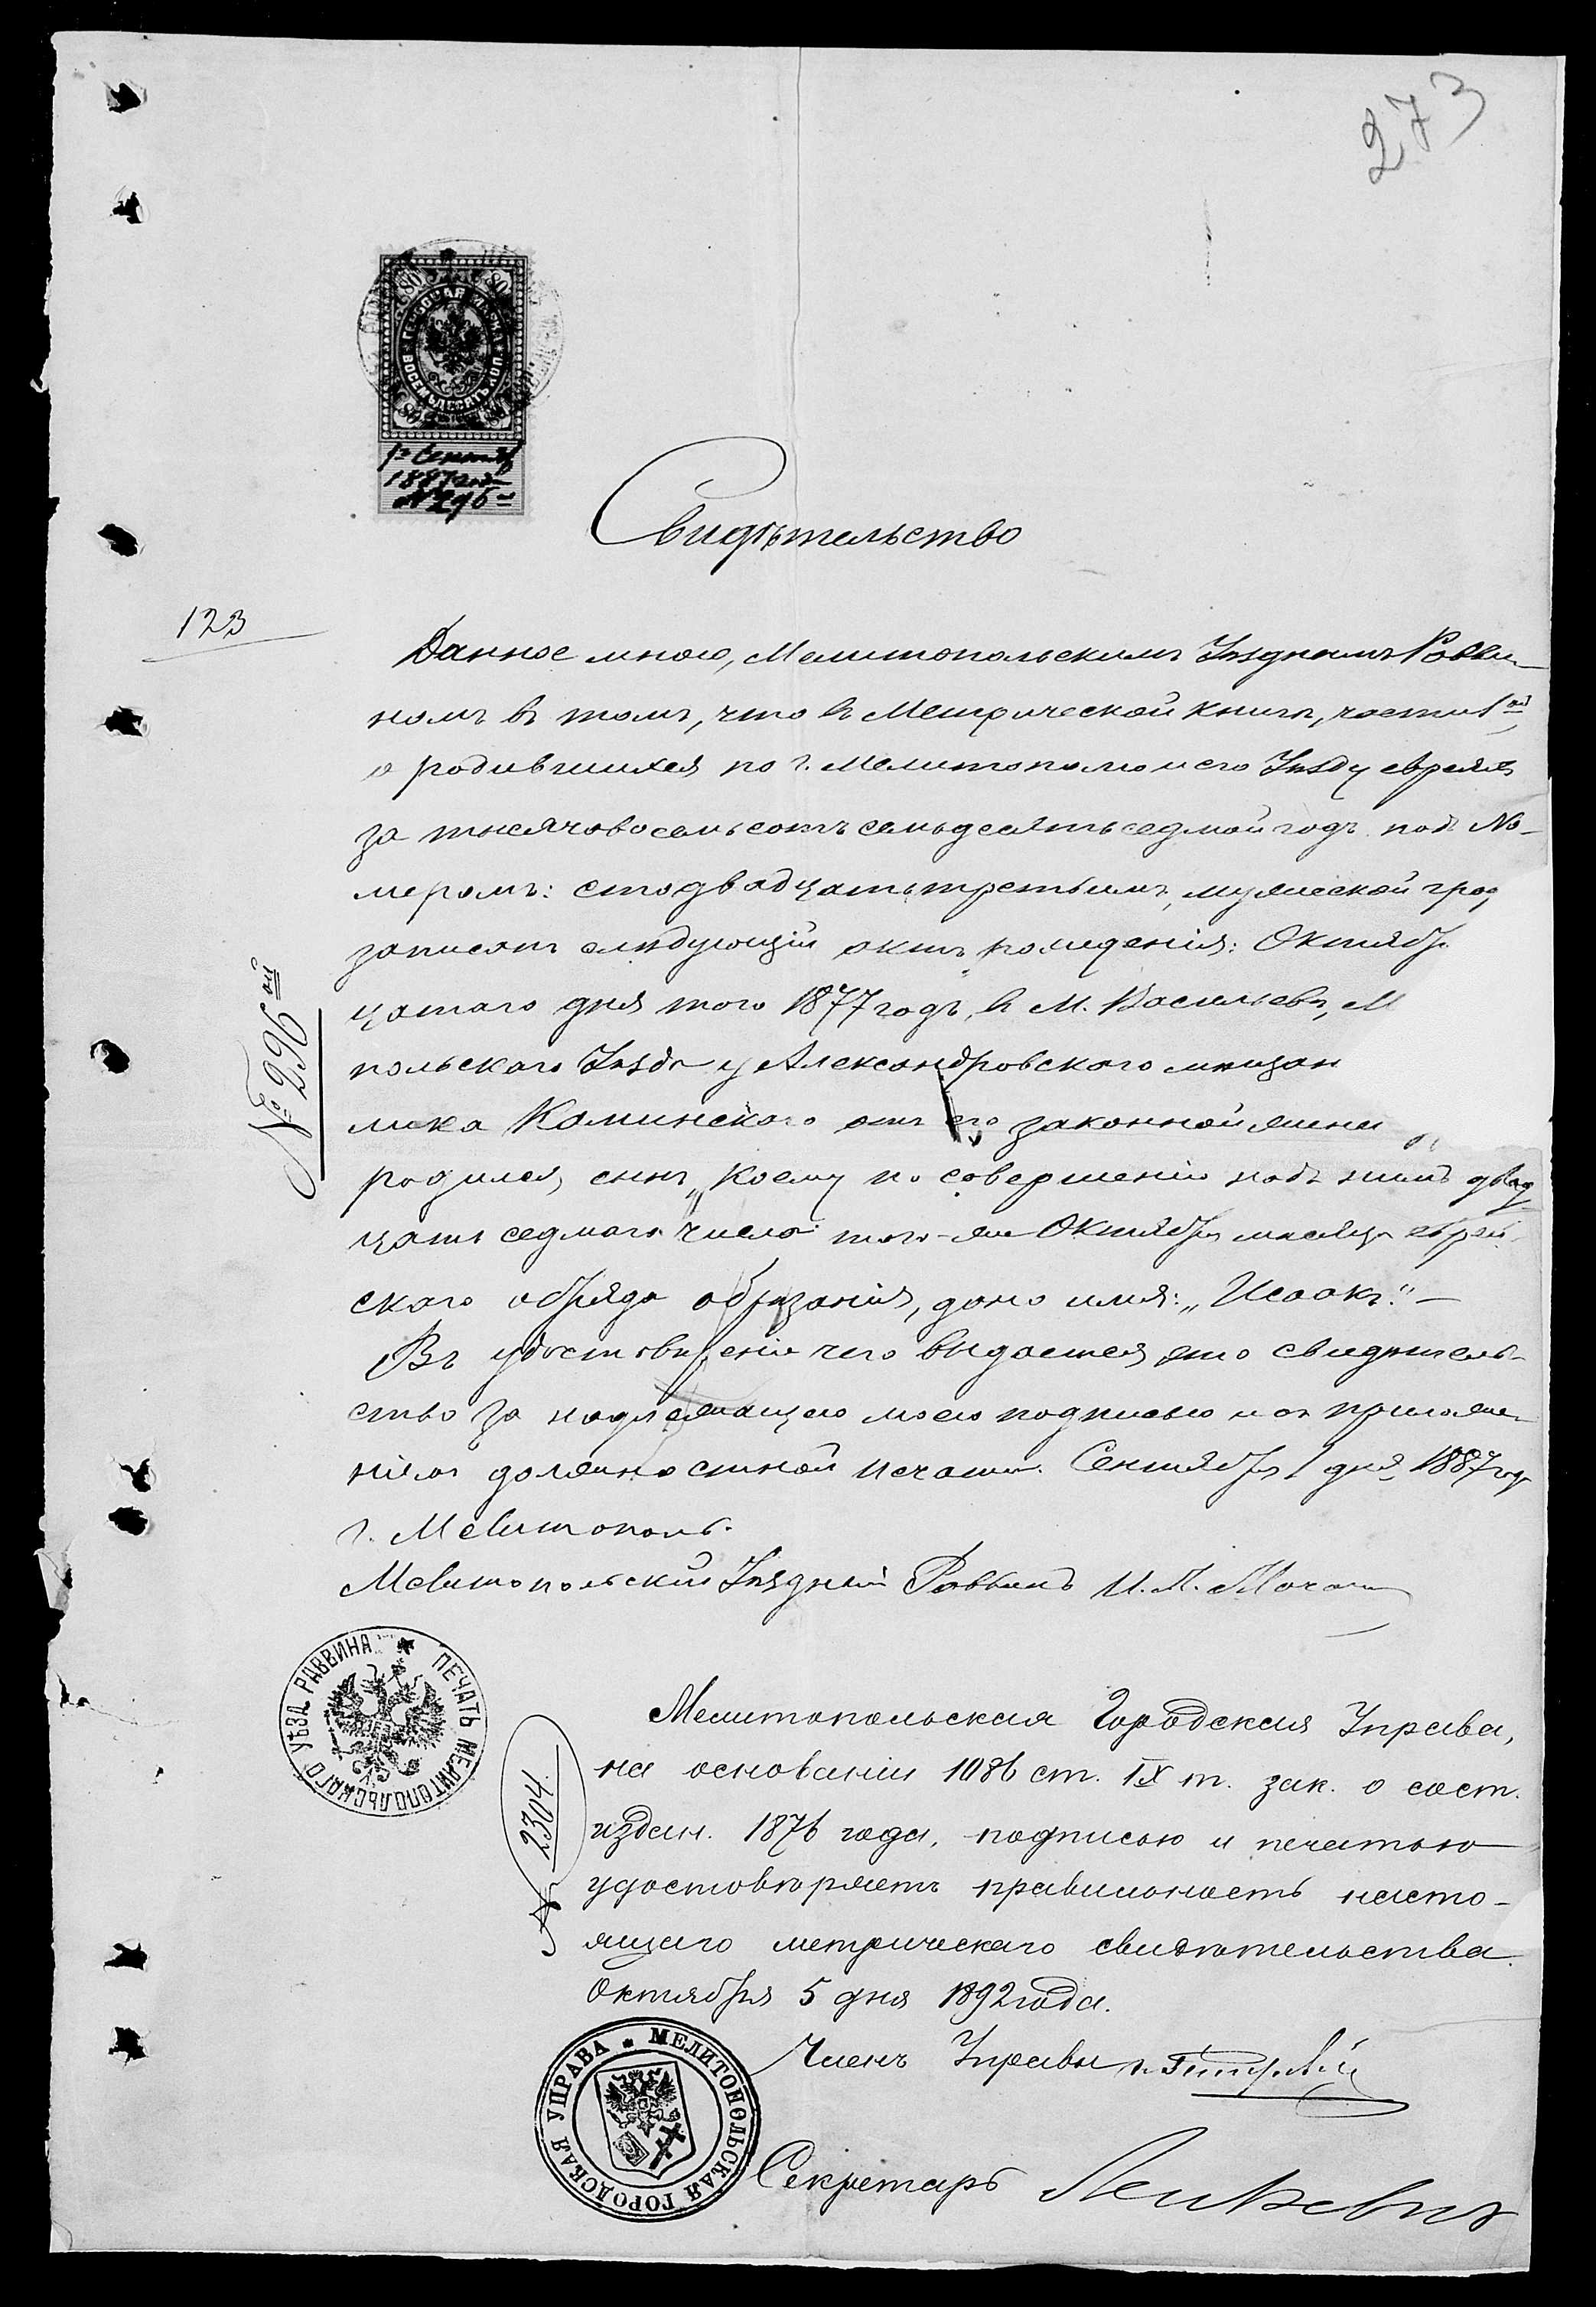 273
ГЕРБОВАЯ МАРКА
ВОСЕМЬДЕСЯТЪ КОП.
80
1го Сентяб
1887 года
№ 296й
Свидѣтельство
123
Данное мною, Мелитопольскимъ Уѣзднымъ Равви-
номъ въ томъ, что въ Метрической книгѣ, части 1ой
о родившихся по г. Мелитополю и его Уѣзду евреяхъ
за тысячовосемьсотъ семьдесятъ седмой годъ подъ Но-
меромъ: сто двадцать третьимъ, мужеской граф
записанъ слѣдующій актъ рожденія: „Октябр
цатаго дня того 1877 годъ, въ М. Васильевѣ, М
польскаго Уѣзда у Александровскаго мѣщан
Каминскаго отъ его законной жены
родился сынъ, коему по совершеніи надъ нимъ двад
цать седмаго числа того-же Октября мѣсяца еврей
скаго обряда обрѣзанія, дано имя: „Исаакъ“.—
Въ удостовѣреніи чего выдается это свидѣтель-
ство за надлежащею моею подписью и съ приложе-
ніемъ должностной печати. Сентября 1 дня 1887 год
г. Мелитополь.
Мелитопольскій Уѣздный Раввинъ И. М.
№ 296ой
ПЕЧАТЬ МЕЛИТОПОЛЬСКАГО УѢЗД. РАВВИНА
№ 2304.
Мелитопольская Городская Управа,
на основаніи 1086 ст. IX т. зак. о сост.
издан. 1876 года, подписью и печатью
удостовѣряетъ правильность насто-
ящаго метрическаго свидѣтельства.
Октября 5 дня 1892 года.
Членъ Управы
МЕЛИТОПОЛЬСКАЯ ГОРОДСКАЯ УПРАВА
Секретарь